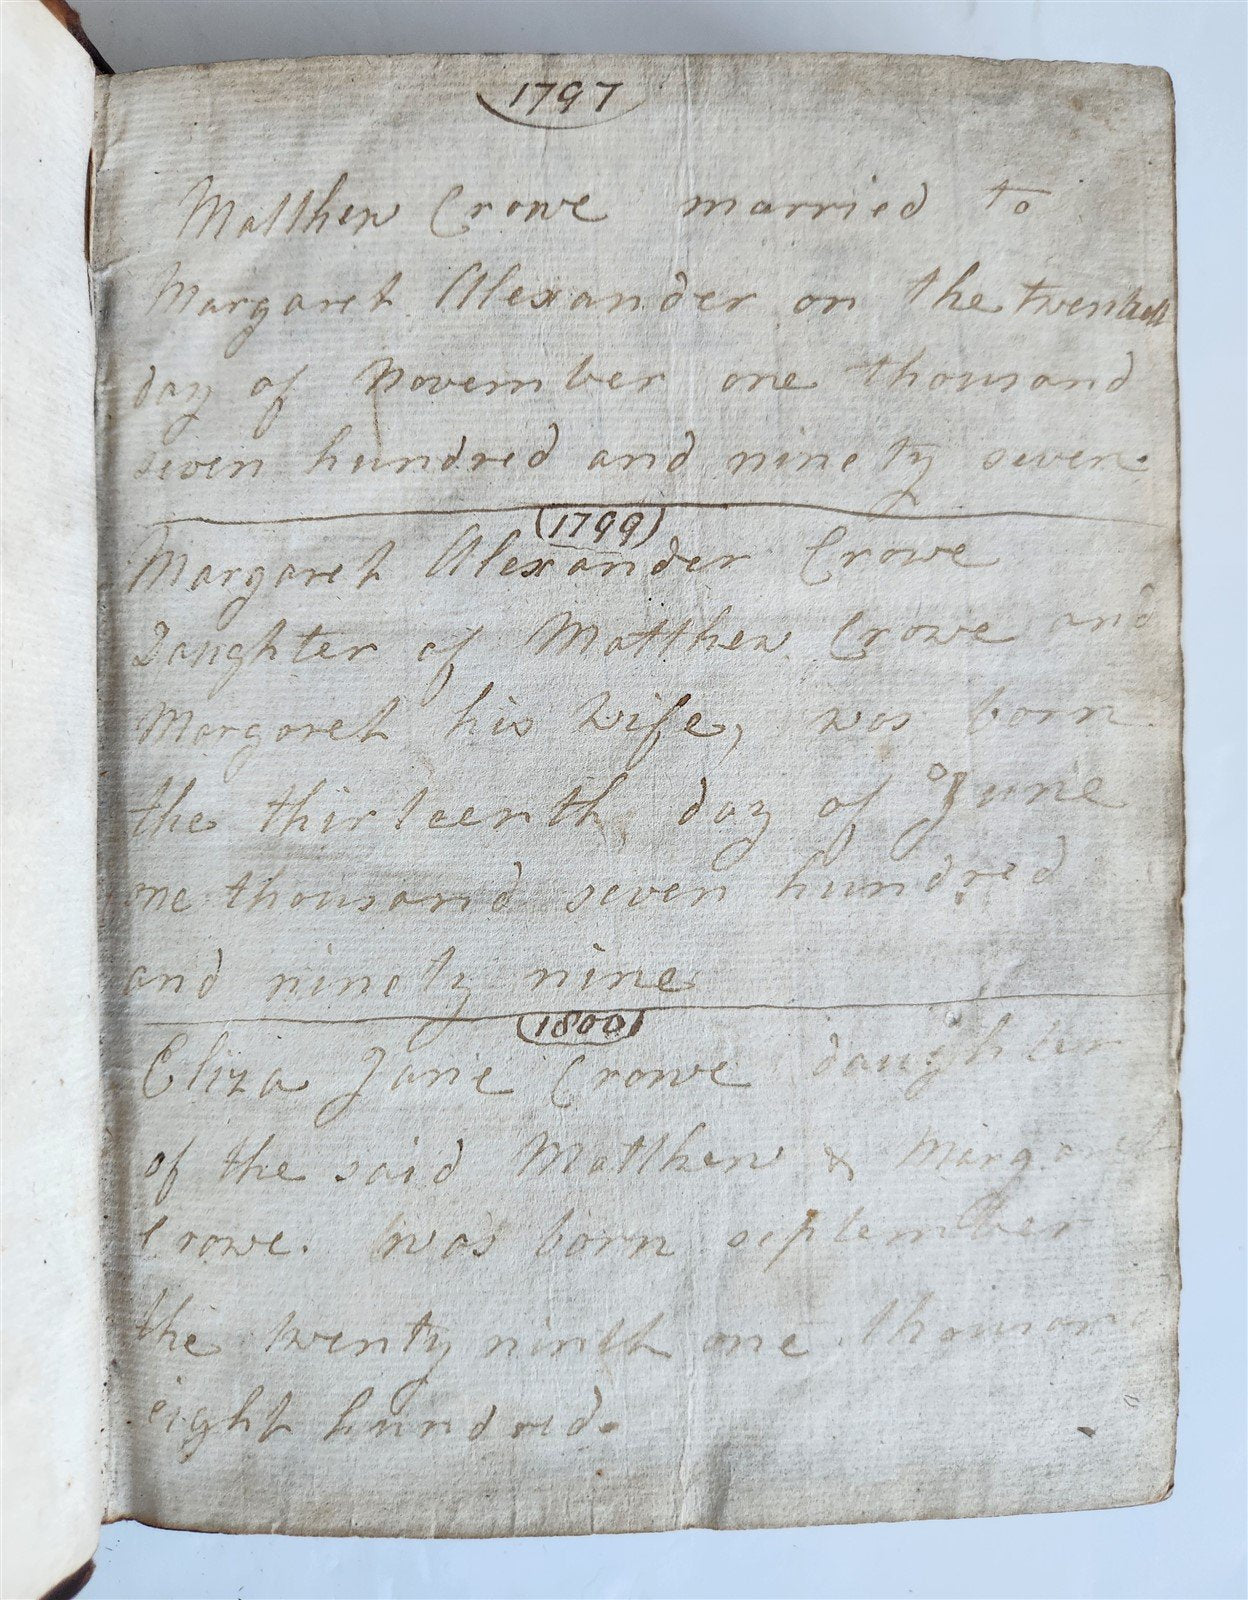 1797
Matthew Crowe married to
Margaret Alexander on the
day of November one thousand
seven hundred and ninety seven
1799
Margaret Alexander Crowe
Daughter of Matthew Crowe and
Margaret his Wife, was born
the thirteenth day of June
one thousand seven hundred
and ninety nine
1800
Eliza Jane Crowe daughter
of the said Matthew & Margaret
Crowe. Was born september
the twenty ninth one thousand
eight hundred.